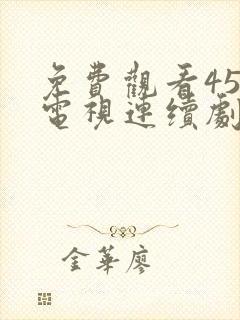 免費觀看45
電視連續劇
金華廖